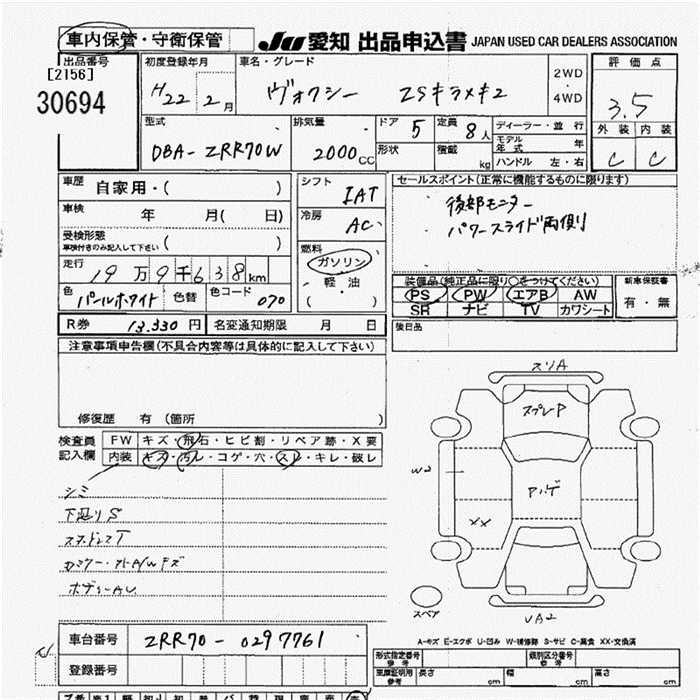 車内保管・守衛保管 Ju 愛知 出品申込書 JAPAN USED CAR DEALERS ASSOCIATION
出品番号 初度登録年月 車名・グレード 2WD・4WD 評価点
[2156]
30694 H22年2月 ヴォクシー ZSキラメキ2 3.5
型式 排気量 ドア 5 定員 8人 ディーラー・並行 外装 内装
DBA-ZRR70W 2000CC 形状 積載 kg モデル年式 年 C C
ハンドル 左・右
車歴 自家用・( ) シフト IAT セールスポイント(正常に機能するものに限ります)
車検 年 月( 日) 冷房 AC 後部モニター
受検形態 ( ) パワースライド両側
車検付きのみ記入して下さい
燃料 ガソリン・軽油 ( )
走行 19万9千638km
装備品(純正品に限り○をつけてください) 新車保証書
色 パールホワイト 色替 色コード 070 PS PW エアB AW 有・無
SR ナビ TV カワシート
R券 13.330円 名変通知期限 月 日 後日品
注意事項申告欄(不具合内容等は具体的に記入して下さい)
修復歴 有 (箇所 )
検査員記入欄 FW キズ・飛石・ヒビ割・リペア跡・X要
内装 キズ・汚レ・コゲ・穴・スレ・キレ・破レ
シミ
下廻りS
ボディーAU
スリA
スプレーP
W2
XX
スペア
UA2
A-キズ E-エクボ U-凹み W-補修跡 S-サビ C-腐食 XX-交換済
車台番号 ZRR70-0297761
登録番号
形式指定番号 参考 類別区分番号 参考
車庫証明用 参考 長さ cm 幅 cm 高さ cm